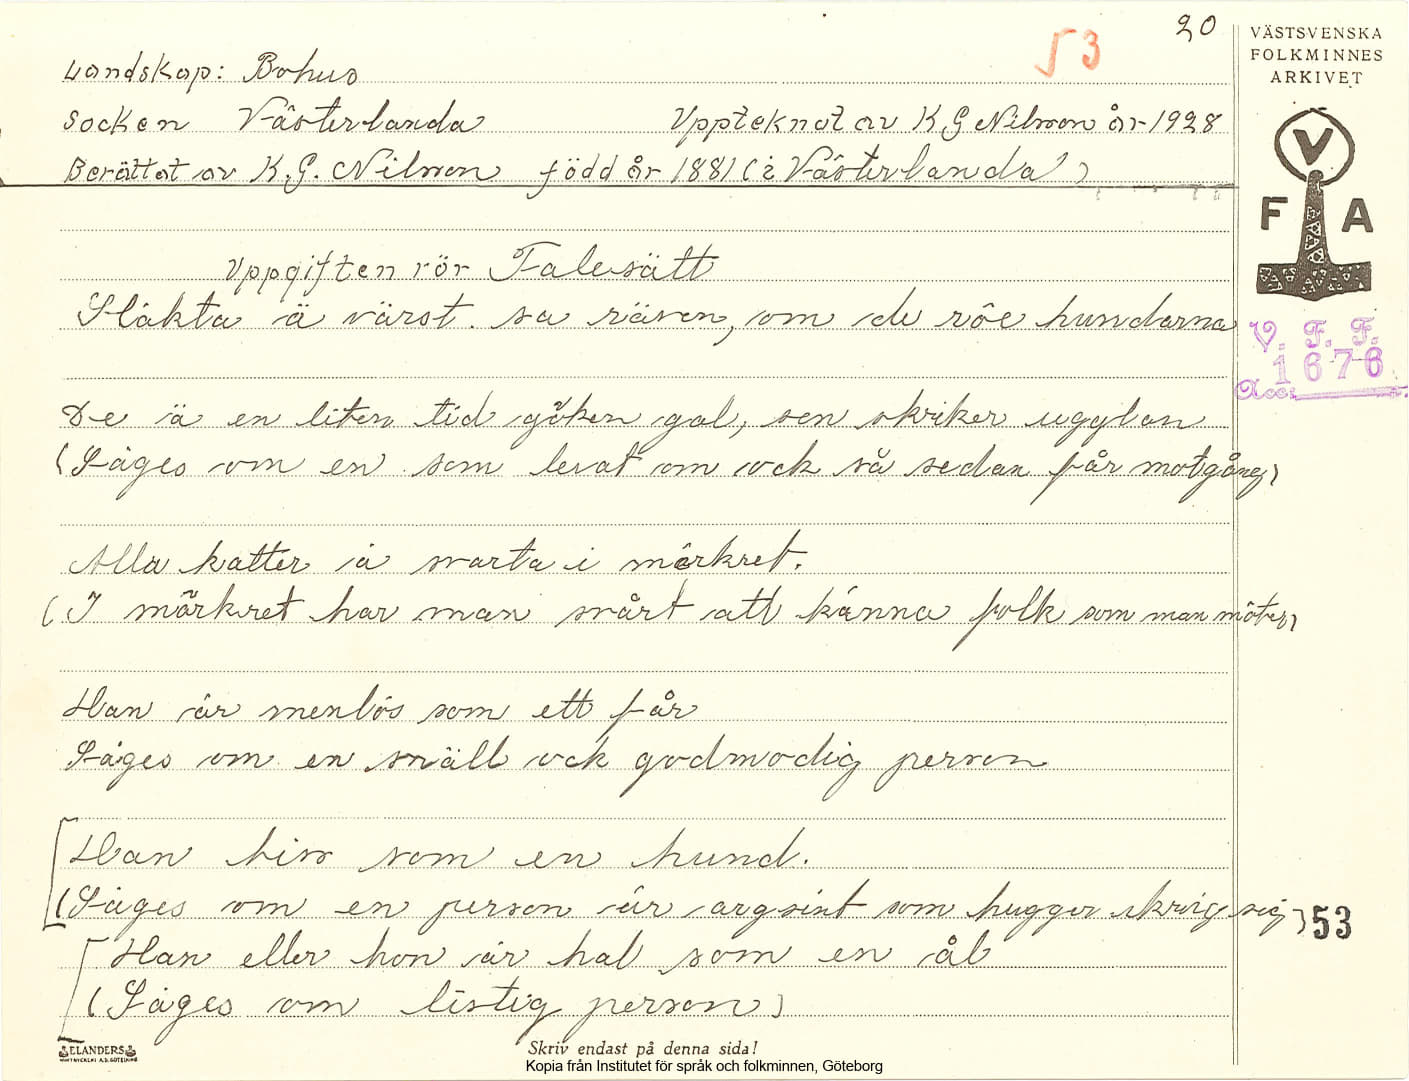 20
53
VÄSTSVENSKA
FOLKMINNES
ARKIVET
Landskap: Bohus
Socken Västerlanda Upptecknat av K G Nilsson år 1928
Berättat av K. G. Nilsson född år 1881 (i Västerlanda)
V
F A
Uppgiften rör Talesätt
Släkta ä värst. sa räven, om de röe hundarna
V. F. F.
1676
Acc:
De ä en liten tid göken gal, sen skriker ugglan
(Säges om en som levat om ock så sedan får motgång)
Alla katter ä svarta i mörkret.
(I mörkret har man svårt att känna folk som man möter)
Han är menlös som ett får
Säges om en snäll ock godmodig person
Han biss som en hund.
(Säges om en person är argsint som hugger ikring sig)
53
Han eller hon är hal som en ål
(Säges om listig person)
ELANDERS
Skriv endast på denna sida!
Kopia från Institutet för språk och folkminnen, Göteborg